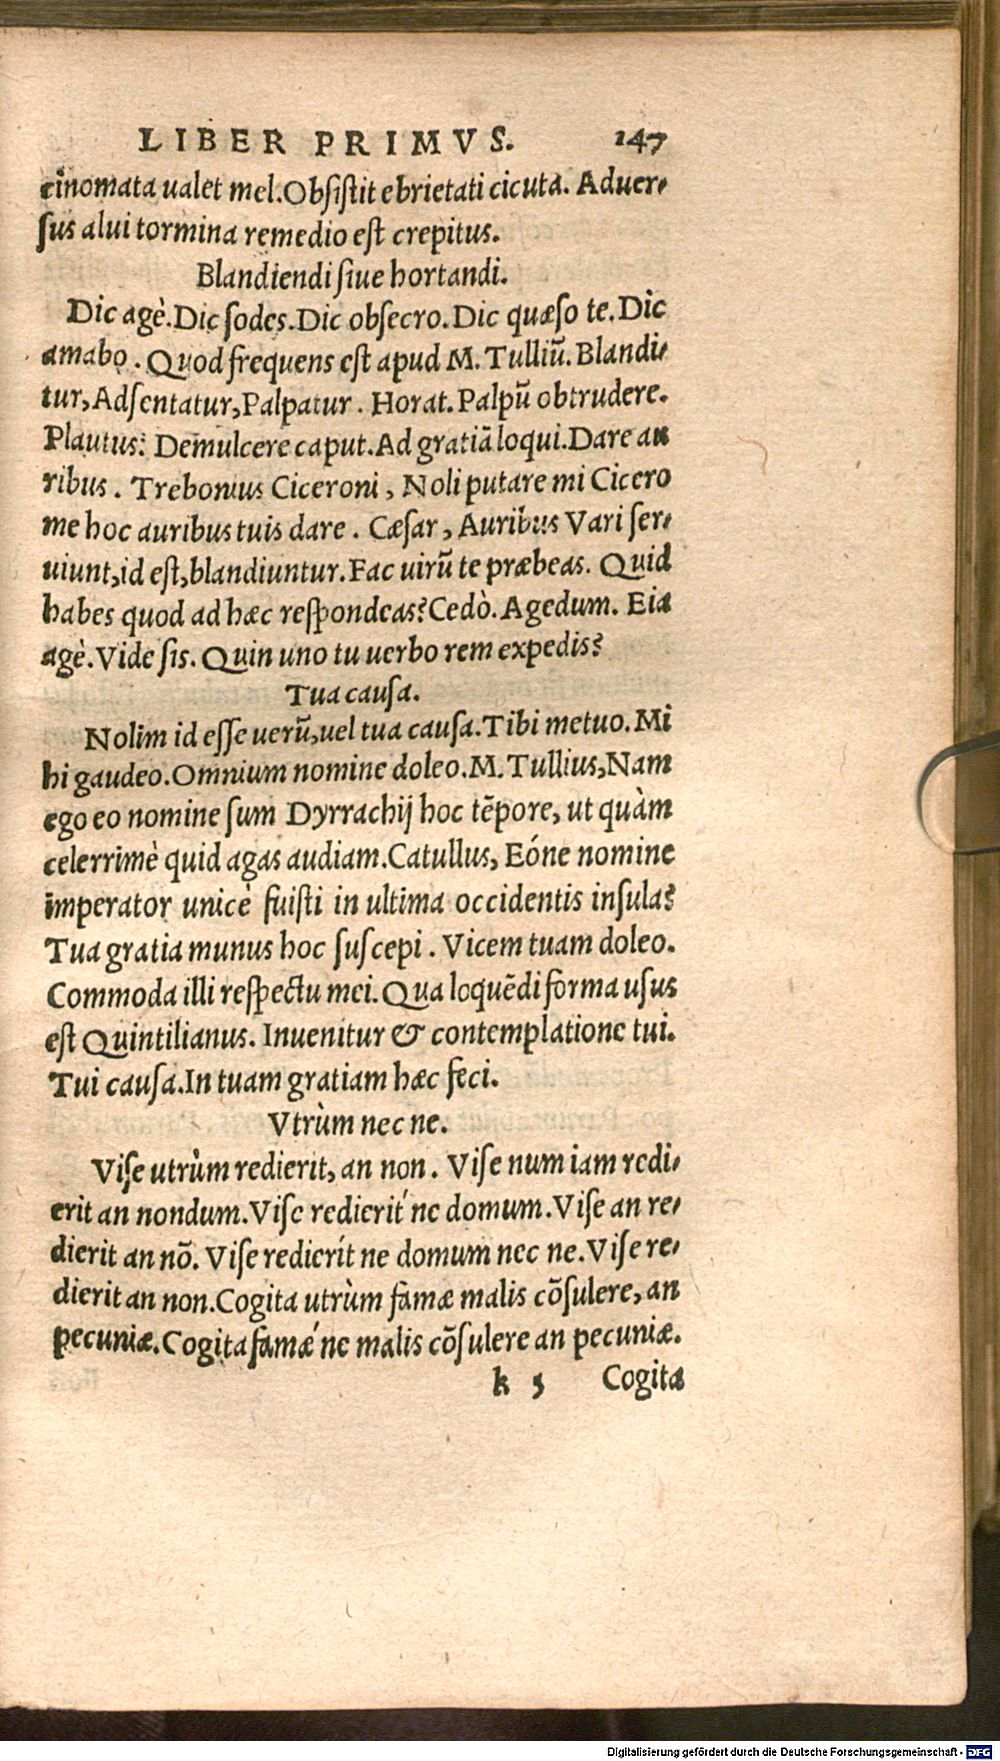 LIBER PRIMVS. 147
cinomata ualet mel. Obsistit ebrietati cicuta. Aduer-
sus alui tormina remedio est crepitus.
Blandiendi siue hortandi.
Dic agè. Dic sodes. Dic obsecro. Dic quæso te. Dic
amabo. Quod frequens est apud M. Tulliū. Blandi-
tur, Adsentatur, Palpatur. Horat. Palpū obtrudere.
Plautus: Demulcere caput. Ad gratiā loqui. Dare au
ribus. Trebonius Ciceroni, Noli putare mi Cicero
me hoc auribus tuis dare. Cæsar, Auribus Vari ser-
uiunt, id est, blandiuntur. Fac uirū te præbeas. Quid
habes quod ad hæc respondeas? Cedò. Agedum. Eia
agè. Vide sis. Quin uno tu uerbo rem expedis?
Tua causa.
Nolim id esse uerū, uel tua causa. Tibi metuo. Mi
hi gaudeo. Omnium nomine doleo. M. Tullius, Nam
ego eo nomine sum Dyrrachij hoc tēpore, ut quàm
celerrimè quid agas audiam. Catullus, Eóne nomine
imperator unicè fuisti in ultima occidentis insula?
Tua gratia munus hoc suscepi. Vicem tuam doleo.
Commoda illi respectu mei. Qua loquēdi forma usus
est Quintilianus. Inuenitur & contemplatione tui.
Tui causa. In tuam gratiam hæc feci.
Vtrùm nec ne.
Vise utrùm redierit, an non. Vise num iam redi-
erit an nondum. Vise redierít ne domum. Vise an re-
dierit an nō. Vise redierít ne domum nec ne. Vise re-
dierit an non. Cogita utrùm famæ malis cōsulere, an
pecuniæ. Cogita famǽ ne malis cōsulere an pecuniæ.
k 3 Cogita
Digitalisierung gefördert durch die Deutsche Forschungsgemeinschaft - DFG